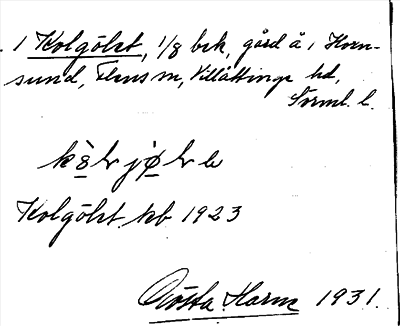 1 Kolgölet, 1/8 brk, gård å i Horn-
sund, Flens sn, Villåttinge hd,
Sörml. l.
Kolgölet kb 1923
Gösta Harne 1931.